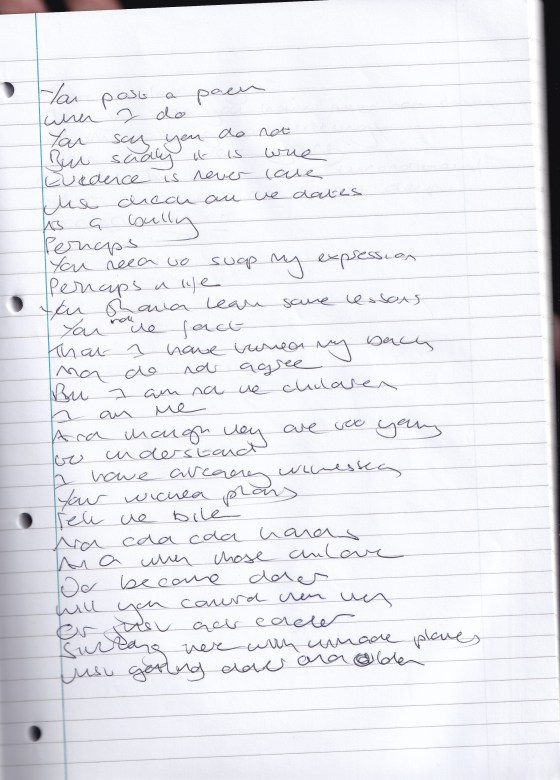 You post a poem
When I do
You say you do not
But sadly it is true
Evidence is never late
Just check out the dates
As a bully
Perhaps
You need to stop my expression
Perhaps in life
You should learn some lessons
You the fact
That I have turned my back
And do not agree
But I am not the children
I am me
And though they are too young
to understand
I have already witnessed
Your wicked plans
Felt the bite
And cold cold hands
And when those children
Do become older
Will you control them then
Or just act colder
there with unmade plans
Just getting older and older